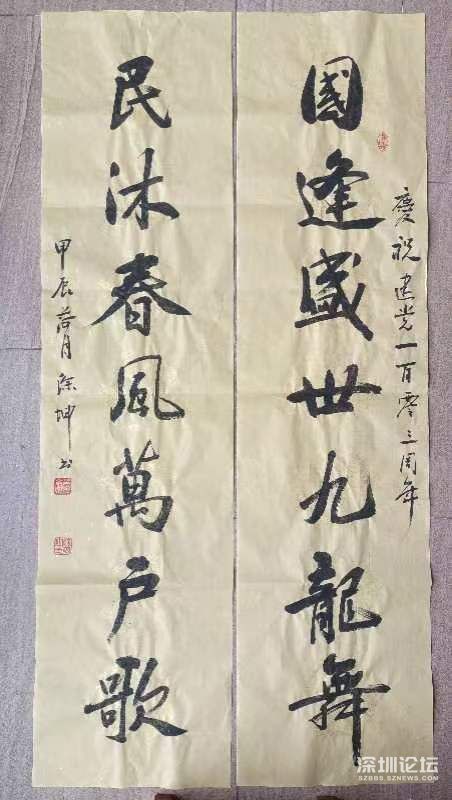 慶祝建党一百零三周年
國逢盛世九龍舞
民沐春風萬户歌
甲辰荷月徐坤书
深圳论坛
SZBBS.SZNEWS.COM